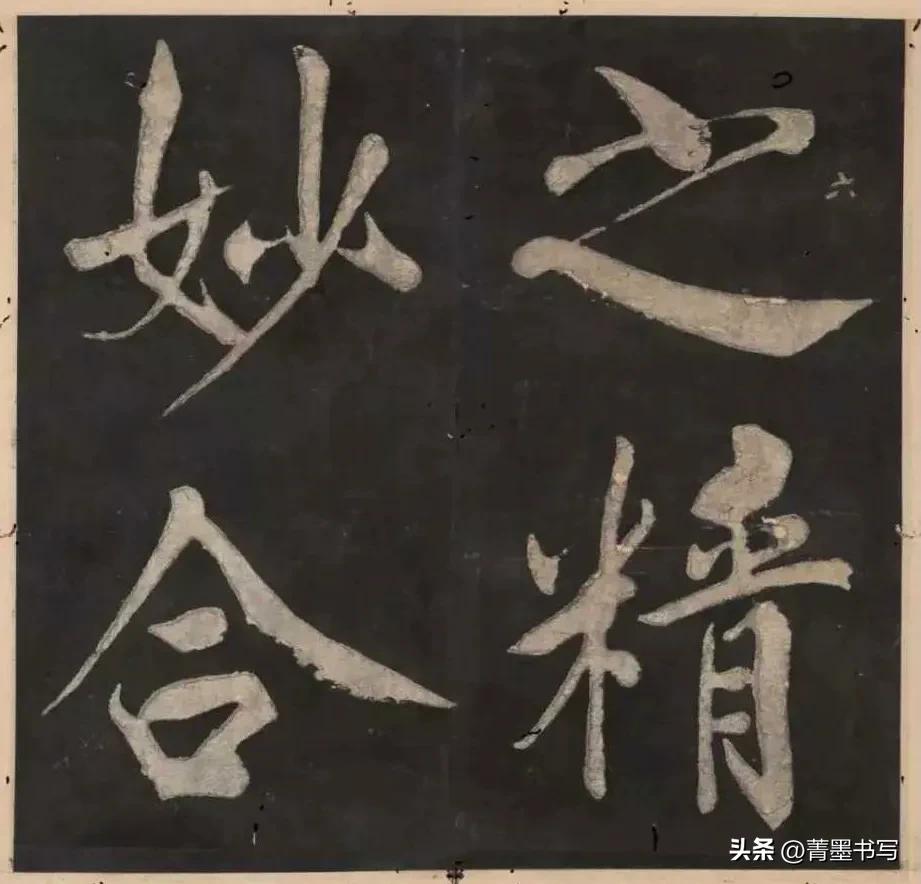 之精
妙合
六
头条 @菁墨书写